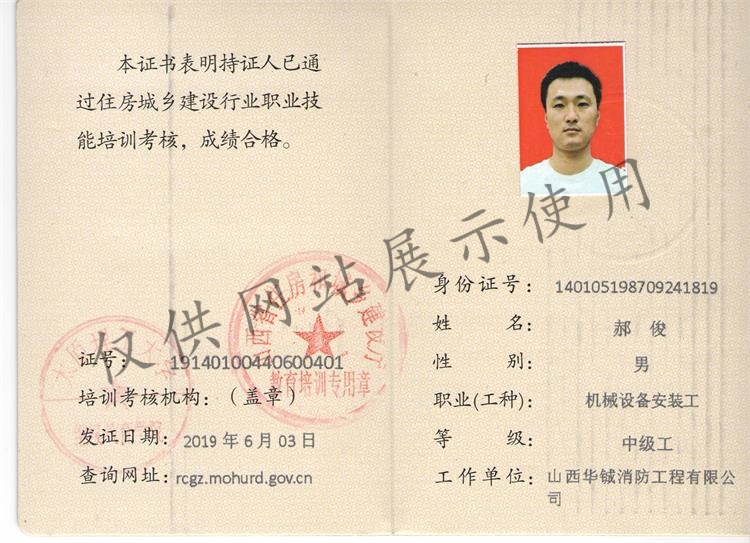 本证书表明持证人已通
过住房城乡建设行业职业技
能培训考核，成绩合格。
证号：19140100440600401
培训考核机构：（盖章）
发证日期：2019 年 6 月 03 日
查询网址：rcgz.mohurd.gov.cn
身份证号：140105198709241819
姓 名：郝 俊
性 别：男
职业(工种)：机械设备安装工
等 级：中级工
工作单位：山西华铖消防工程有限公
司
教育培训专用章
仅供网站展示使用